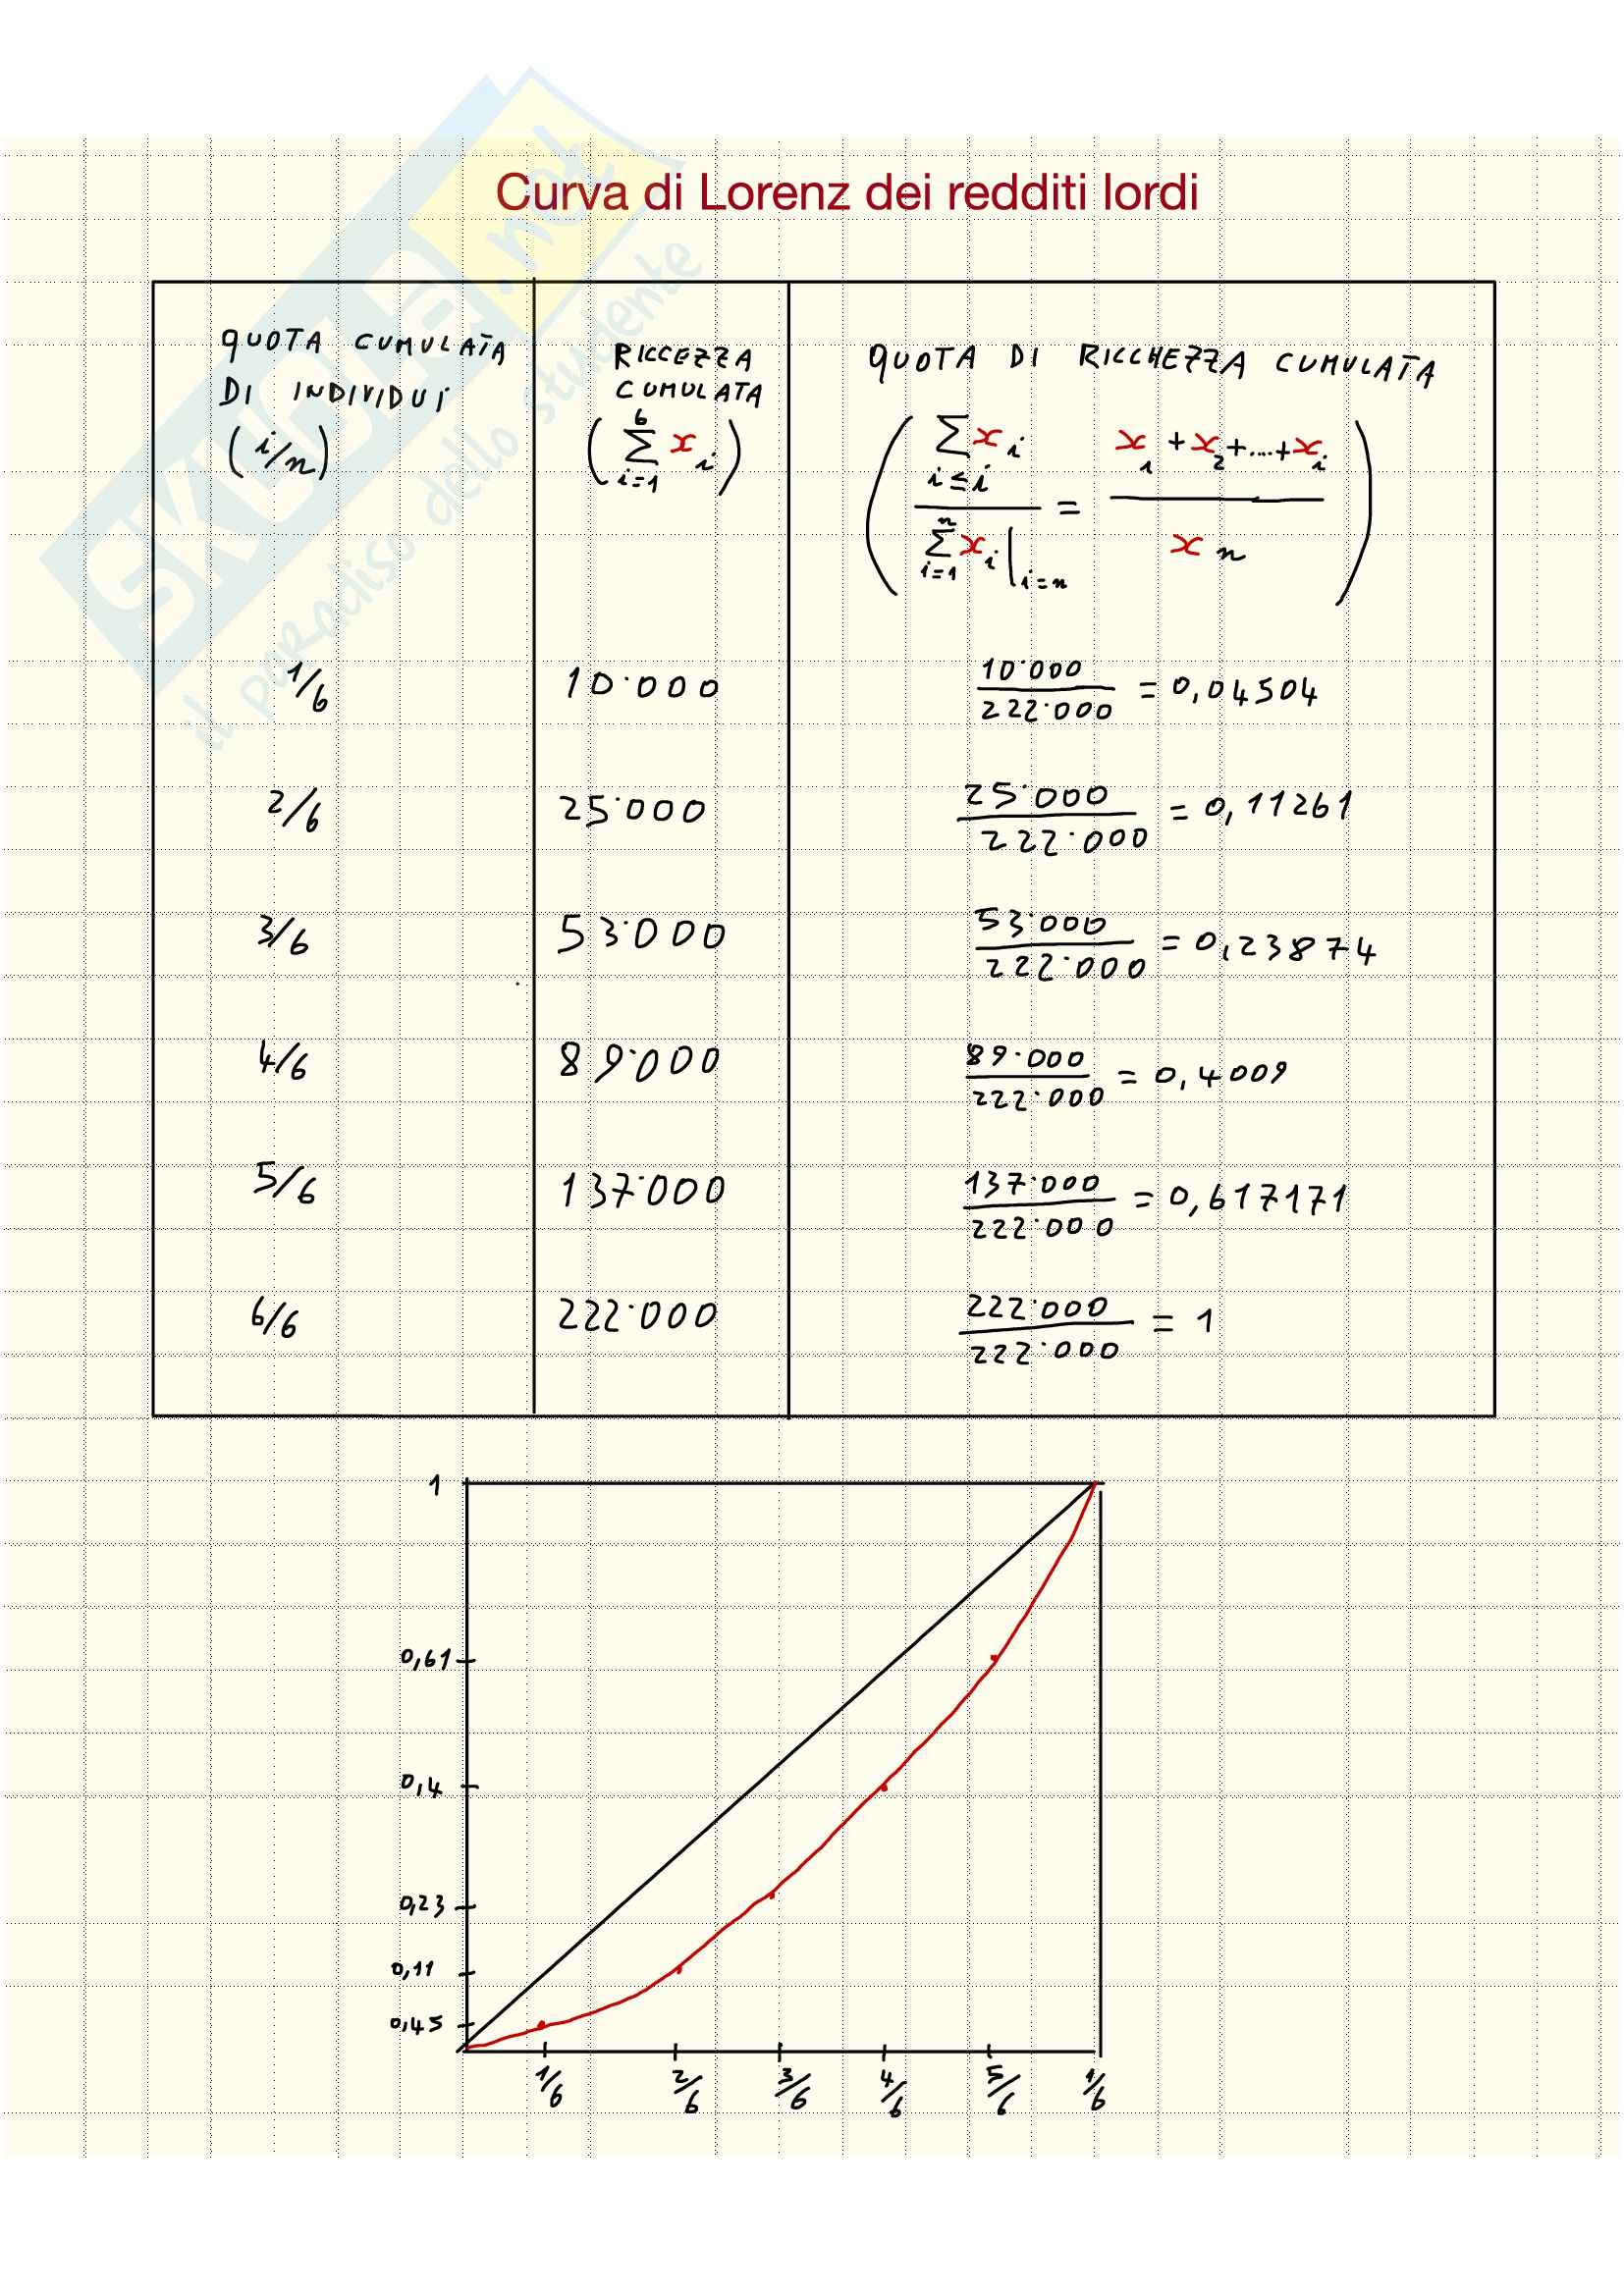 Curva di Lorenz dei redditi lordi
SKUOLA.net
il paradiso dello studente
QUOTA CUMULATA
DI INDIVIDUI
(i/n)
RICCEZZA
CUMULATA
(∑_{i=1}^{6} x_i)
QUOTA DI RICCHEZZA CUMULATA
(∑_{i≤i} x_i / ∑_{i=1}^{n} x_i |_{i=n} = x_1 + x_2 + .... + x_i / x_n)
1/6 10·000 10·000/222·000 = 0,04504
2/6 25·000 25·000/222·000 = 0,11261
3/6 53·000 53·000/222·000 = 0,23874
4/6 89·000 89·000/222·000 = 0,4009
5/6 137·000 137·000/222·000 = 0,617171
6/6 222·000 222·000/222·000 = 1
1
0,61
0,4
0,23
0,11
0,45
1/6 2/6 3/6 4/6 5/6 1/6